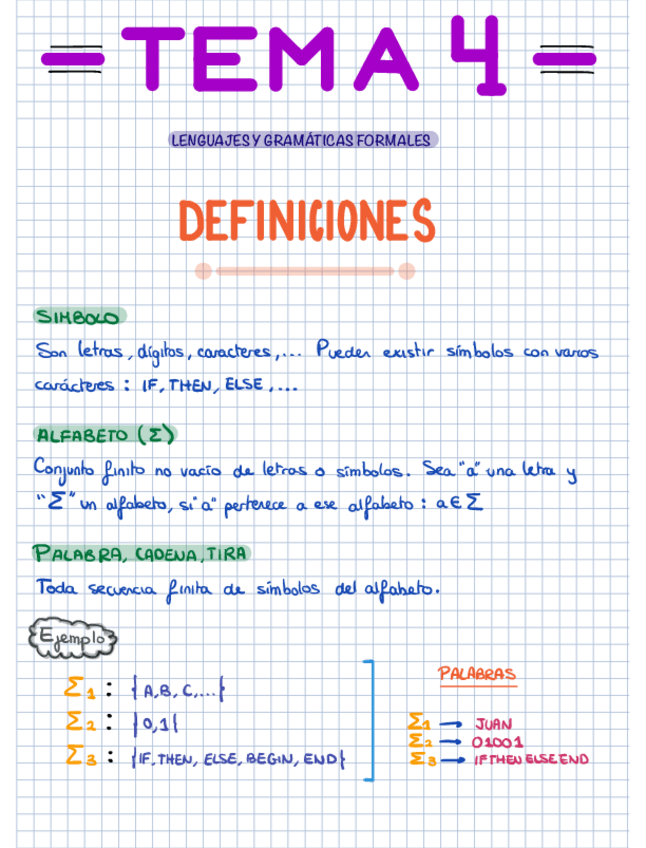 = TEMA 4 =
LENGUAJES Y GRAMÁTICAS FORMALES
DEFINICIONES
SIMBOLO
Son letras, dígitos, caracteres,... Pueden existir símbolos con varios
carácteres : IF, THEN, ELSE,...
ALFABETO (Σ)
Conjunto finito no vacío de letras o símbolos. Sea "a" una letra y
"Σ" un alfabeto, si "a" pertenece a ese alfabeto : a ∈ Σ
PALABRA, CADENA, TIRA
Toda secuencia finita de símbolos del alfabeto.
Ejemplo
Σ1 : {A, B, C,...}
Σ2 : {0,1}
Σ3 : {IF, THEN, ELSE, BEGIN, END}
PALABRAS
Σ1 → JUAN
Σ2 → 01001
Σ3 → IF THEN ELSE END